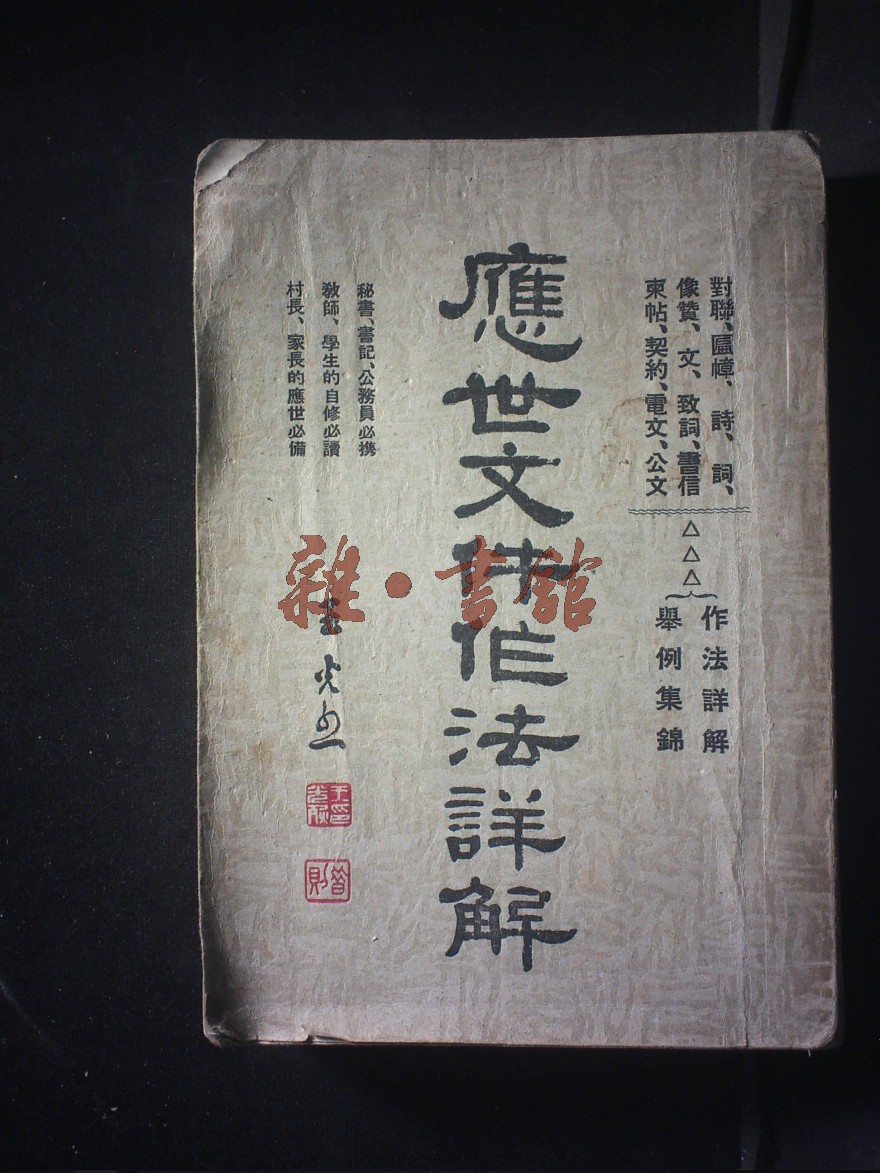 對聯、匾幛、詩、詞、
像贊、文、致詞、書信
柬帖、契約、電文、公文
△△△
作法詳解
舉例集錦
應世文件作法詳解
秘書、書記、公務員必携
教師、學生的自修必讀
村長、家長的應世必備
雜·書館